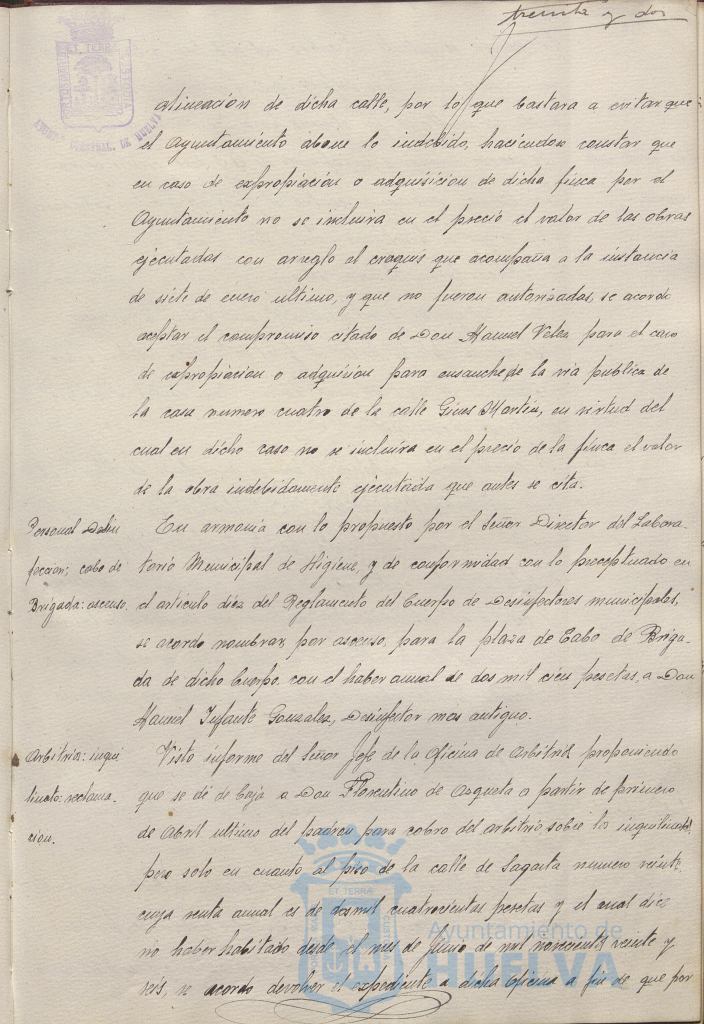 treinta y dos
alineación de dicha calle, por lo que bastara a evitar que
el Ayuntamiento abone lo indebido, haciendose constar que
en caso de expropiacion o adquisicion de dicha finca por el
Ayuntamiento no se incluira en el precio el valor de las obras
ejecutadas con arreglo al croquis que acompaña a la instancia
de siete de enero ultimo, y que no fueron autorizadas, se acordo
aceptar el compromiso citado de Don Manuel Velez para el caso
de expropiacion o adquisicion para ensanche de la via publica de
la casa numero cuatro de la calle Gines Martin, en virtud del
cual en dicho caso no se incluira en el precio de la finca el valor
de la obra indebidamente ejecutada que antes se cita.
Personal Desin
feccion; cabo de
Brigada: ascenso.
En armonia con lo propuesto por el Señor Director del Labora-
torio Municipal de Higiene, y de conformidad con lo preceptuado en
el articulo diez del Reglamento del Cuerpo de Desinfectores municipales,
se acordo nombrar, por ascenso, para la plaza de Cabo de Briga-
da de dicho Cuerpo, con el haber anual de dos mil cien pesetas, a Don
Manuel Infante Gonzalez, Desinfector mas antiguo.
Arbitrios: inqui
linato: reclama-
cion.
Visto informe del Señor Jefe de la Oficina de Arbitrios proponiendo
que se dé de baja a Don Florentino de Azqueta a partir de primero
de Abril ultimo del padron para cobro del arbitrio sobre los inquilinatos
pero solo en cuanto al piso de la calle de Sagasta numero veinte,
cuya renta anual es de dos mil cuatrocientas pesetas y el cual dice
no haber habitado desde el mes de Junio de mil novecientos veinte y
seis, se acordo devolver el expediente a dicha Oficina a fin de que por
Ayuntamiento de
HUELVA